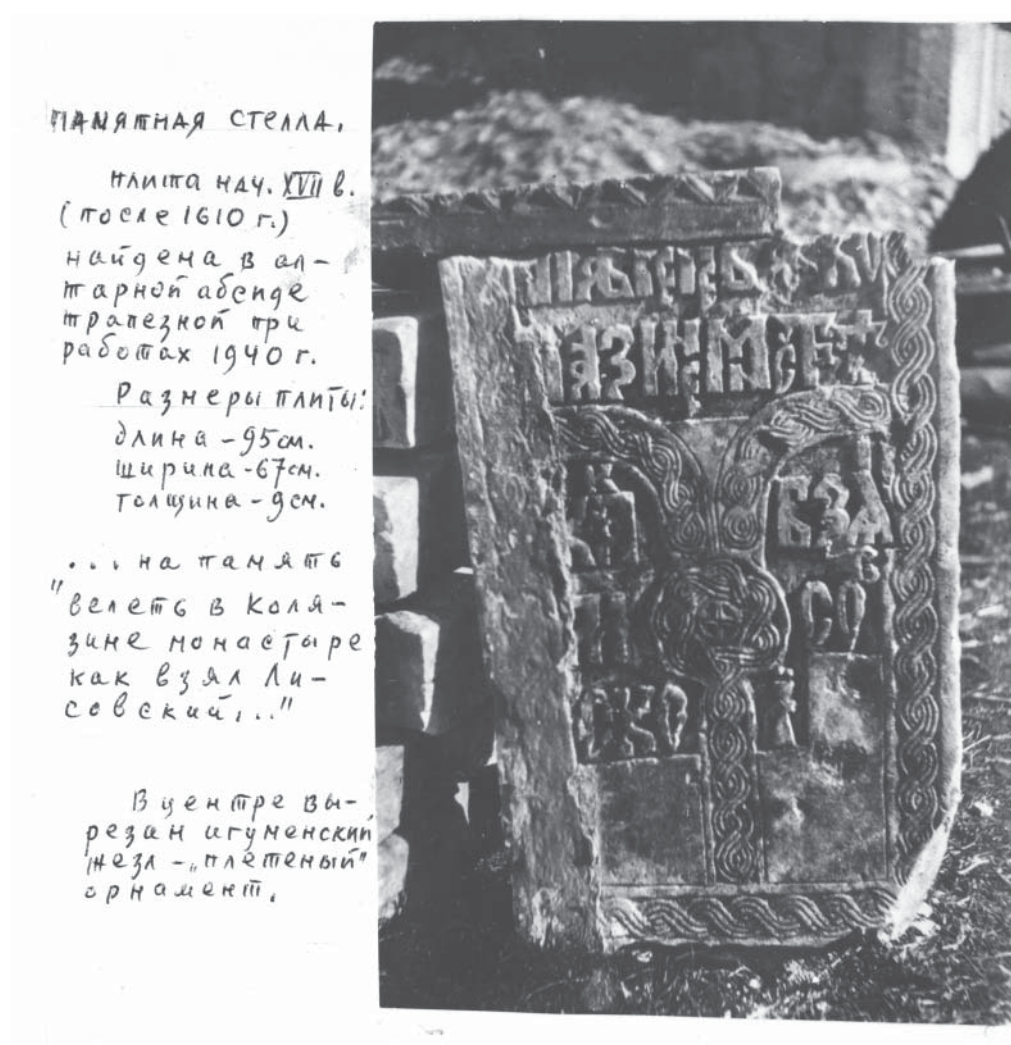 ПАМЯТНАЯ СТЕЛЛА.
плита нач. XVII в.
(после 1610 г.)
найдена в ал-
тарной абсиде
трапезной при
работах 1940 г.
Размеры плиты:
длина - 95 см.
ширина - 67 см.
толщина - 9 см.
... на память
"велеть в Коля-
зине монастыре
как взял Ли-
совский..."
В центре вы-
резан игуменский
жезл - „плетеный"
орнамент.